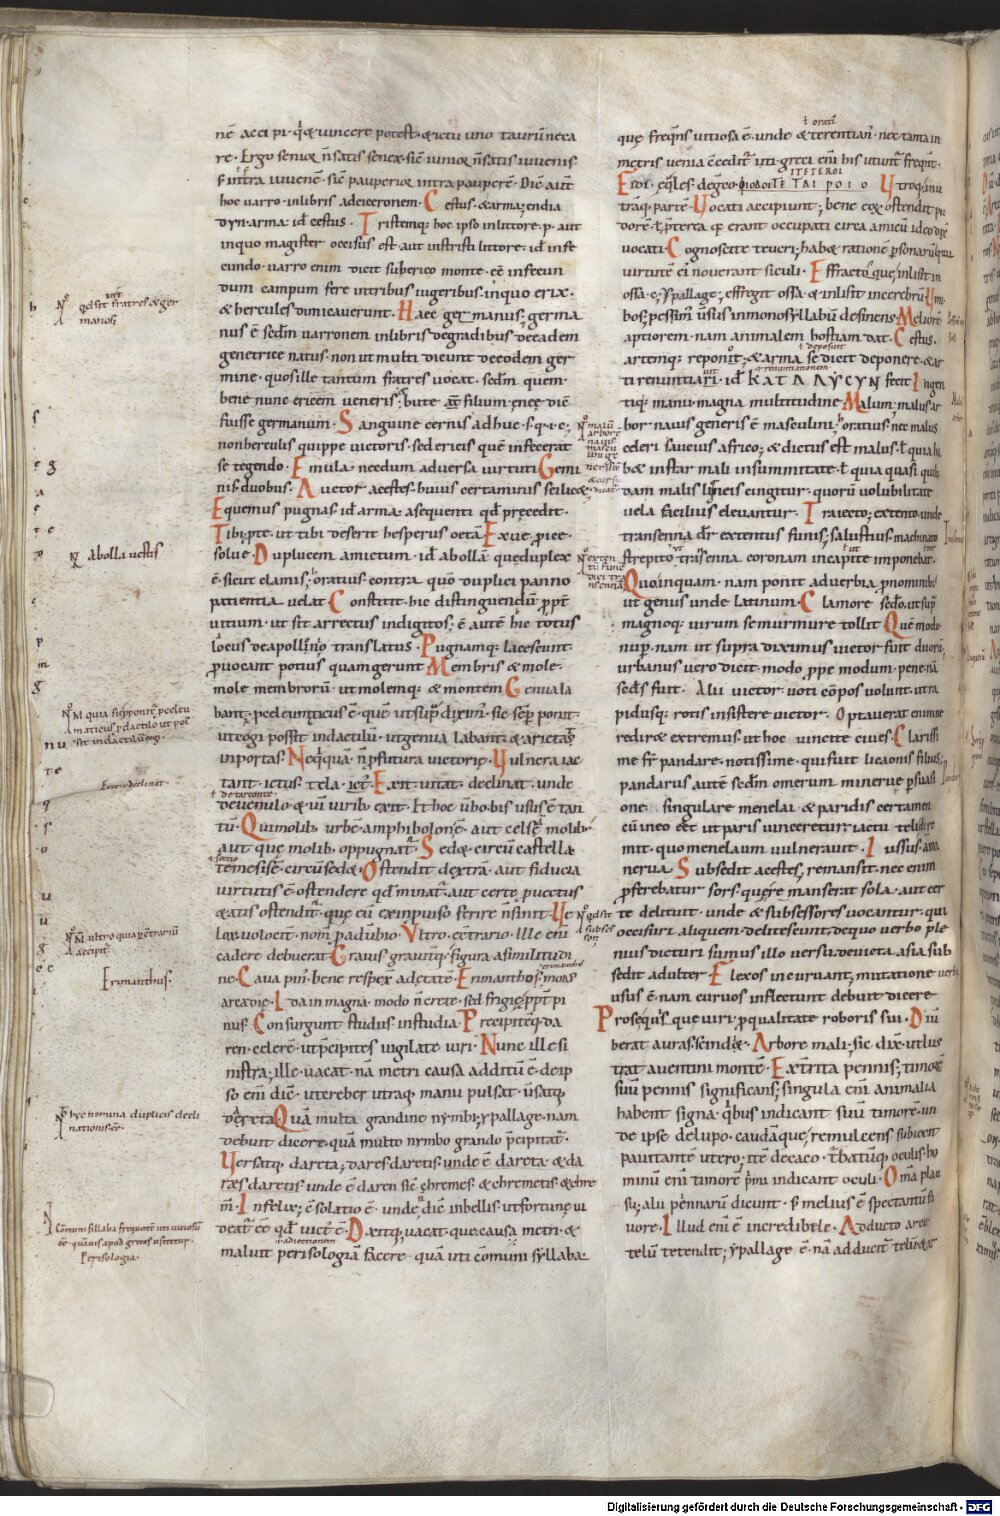 nē acci pi· qꝗ& uincere potest· & ictu uno taurū neca
re· Ergo senior n̄ satis senex· sic̄ iunior n̄ satis iuuenis·
s; intra iuuenē· sic̄ pauperior intra pauperē· Dic̄ aut̄
hoc uarro· inlibris adciceronem· Cestus· & arma; endia
dyn· arma· id ē cestus· Tristemq; hoc ipso inlittore· p· aut
inquo magister occisus est· aut instristi littore· id infe
cundo· uarro enim dicit suberico monte· eē infecun
dum campum fere intribus iugeribus· inquo erix·
& hercules dimicauerunt· Haec germanus; germa
nus ē sedm̄ uarronem inlibris degradibus· deeadem
genetrice natus· non ut multi dicunt deeodem ger
mine· quos ille tantum fratres uocat· sedm̄ quem·
bene nunc ericem ueneris; & bute filium· eneę dic̄
fuisse germanum· Sanguine cernis adhuc· s·q·i·e;
non herculis quippe uictoris· sed ericis que infecerat
se tegendo· Emula· necdum aduersa uirtuti· Gemi
nis· duobus· Auctor acestes· huius certaminis scilic&·
Equemus pugnas· id arma· asequenti qđ pręcedit·
Tibi· pte· ut tibi deserit hesperus oetā· Exue· pice·
solue· Duplicem amictum· id ē abollā· quę duplex
ē· sicut clamis; oratius· contra quō duplici panno
patientia uelat· Constitit· hic distinguendū ꝓpt̄
uitium· ut sit arrectus indigitos; ē autē hic totus
locus deapollinio translatus· Pugnamq; lacescunt·
ꝓuocant potius quam gerunt· Membris & mole·
mole membrorū· ut molemq; & montem· Genua la
bant· pedeuncticus ē· quē ut sup̄ diximˀ· sic sēp̄ ponit·
ut cogi possit indactilū· ut genua labant· & ariet&
inportas· Necquā· n̄ ꝓfutura uictorię· Uulnera iac
tant· ictus· tela· ict̄· Exit· uitat· declinat· unde
deuenulo· & ui uirib; exit· Et hoc ūbo bis usus ē tan
tū· Qui molib; urbē· amphibolon ē· aut celsā molib;
aut quę molib; oppugnat̄· Sedet circū castella
temesis ē· circū sed&· Ostendit dextrā· aut fiducia
uirtutis ē· ostendere qđ minat̄· aut certe prouectus
&atis ostendit̄· quę cū exinpulso ferire n̄ sinit· Ue
lox· uolocit̄· nom̄ p aduerbio· Ultro· econtrario· Ille eni
cadere debuerat· Grauis grauitq; figura asimilitudi
ne· Caua pin̄· bene respex adętatē· Erimanthos; mons
arcadię· Ida in magna· modo n̄ crete· sed frigię; ppt̄ pi
nus· Consurgunt studiis· instudia· Precipitēq; da
ren· celerē· ut p̄cipites uigilate uiri· Nunc ille si
nistra; ille· uacat· nā metri causa additū ē· deip
so eni dic̄· ut creber utraq; manu pulsat· uersatq;
dareta· Quā multa grandine nymbi; ypallage· nam
debuit dicere· quā multo nymbo grando p̄cipitat̄·
Uersatq; dareta; dares daretis· unde ē dareta· & da
ræs daretis unde ē daren sic̄ chremes· & chremetis· & chre
m̄· Infelix; ē solatio ē· unde; dic̄ inbellis· ut fortunę ui
deat̄ eē qđ uict̄ ē· Dextq; uacat· quę causa metri· &
maluit perisologiā facere· quā uti cōmuni syllaba·
quę freqn̄s uitiosa ē· unde & terentian̄· nec tanta in
metris uenia c̄cedit̄ uti· greci eni his utunt̄ freqn̄t·
Eidi· eq̄les· degeo φιλοι ΤΕ ΤΑΙ Ρ Ο Ι Ο Utroq; ānu
trāq; parte· Uocati accipiunt; bene eos ostendit pu
dorē· t pterea qs erant occupati circa amicū ideo dare
uocati· Cognoscite teucri; hab& rationē psonarū qua
uirtutē ei nouerant siculi· Effractoque; inlisit in
ossa· c; ypallage; effregit ossa· & inlisit incerebrū· Um
bos; pessimˀ usus inmonosyllabū desinens· Meliorē·
aptiorem· nam animalem hostiam dat· Cestus·
artemq; reponit; & arma se dicit deponere· & ar
ti renuntiari· id ΚΑΤΑΛΥCΥΝ fecit· Ingen
tiq; manu· magna multitudine· Malum· malus ar
bor nauis generis ē masculini; oratius· nec malus
celeri saucius africo; & dictus est malus· t quia ha
b& instar mali insummitate· t quia quasi quib;
dam malis ligneis cingitur· quorū uolubilitate
uela facilius eleuantur· Traiecto; extento· unde
transenna dr̄ extentus funis; salustius· machinato
strepitu· transenna coronam incapite imponebat·
Quo inquam· nam ponit aduerbia pnominib;
ut genus unde latinum· Clamore secdo· ut sup̄
magnoq; uirum se murmure tollit· Quē modo·
nup̄· nam ut supra diximus uictor fuit duorū;
urbanus uero dicit· modo· ꝓpe modum· pene· nā
scds fuit· Alii uictor· uoti cōpos uolunt· ut ra
pidusq; rotis insistere uictor· Optauerat enim he
redire· & extremus· ut hoc uincite ciues· Clarissi
me fr̄ pandare· notissime· qui fuit licaonis filius;
pandarus autē sedm̄ omerum minerue persuasi
one· singulare menelai & paridis certamen
cū ineo ēēt ut paris uinceretur· iactu teli dire
mit· quo menelaum uulnerauit· Iussus· ā mi
nerua· Subsedit acestes; remansit· nec enim
ꝓferebatur sors· quęre manserat sola· aut cer
te delituit· unde & subsessores uocantur· qui
occisuri aliquem· delitescunt; dequo uerbo ple
nius dicturi sumus illo uersu· deuicta asia sub
sedit adulter· Flexos incuruant; mutatione uerbi
usus ē· nam curuos inflectunt debuit dicere
Prosequis; que uiri· p qualitate roboris sui· Diu
berat auras· scindit· Arbore mali; sic dix̄· ut lus
trat auentini montē· Extrita pennis; timorē
suū pennis significans; singula eni animalia
habent signa· qb; indicant suū timorē· un
de ipse delupo· caudāque; remulcens subiecit
pauitantē utero; itē decaco· tbatūq; oculis· ho
minū eni timorē pmi indicant oculi· Omīa plau
su; alii pennarū dicunt· s; melius ē spectantū fa
uore· Illud eni ē incredibile· Adducto arcu
telū tetendit; ypallage ē· nā adducit̄ telū· & ar
t orati
ΙΤΕΤΕROΙ
t deposuit
renuntiationem
t de tarconte
erimanthus
t adiectionem
N̄ qd sit frātres & ger
manos;
N̄ abolla uestis
N̄ M quia sęp pontˀ; peleu
maticus p dactilo ut pos
sit indactilū cogi·
Exit· declinat·
N̄ M ultro quia ꝓ cōtrariū
accipit̄
Erimanthus·
N̄ hęc nomina duplicis decli
nationis ēē·
Cōmuni sillaba frequent̄ uti uiciosū
eē· quāuis apud grecos usitetur·
Perisologia·
N̄ malū
arborē
nauis
mascu
lini ge
neris ēē
& cur sic
dicat̄
N̄ exten
tū funē
dici tra
nsenna
N̄ qd sit
subses
sor;
Digitalisierung gefördert durch die Deutsche Forschungsgemeinschaft - DFG